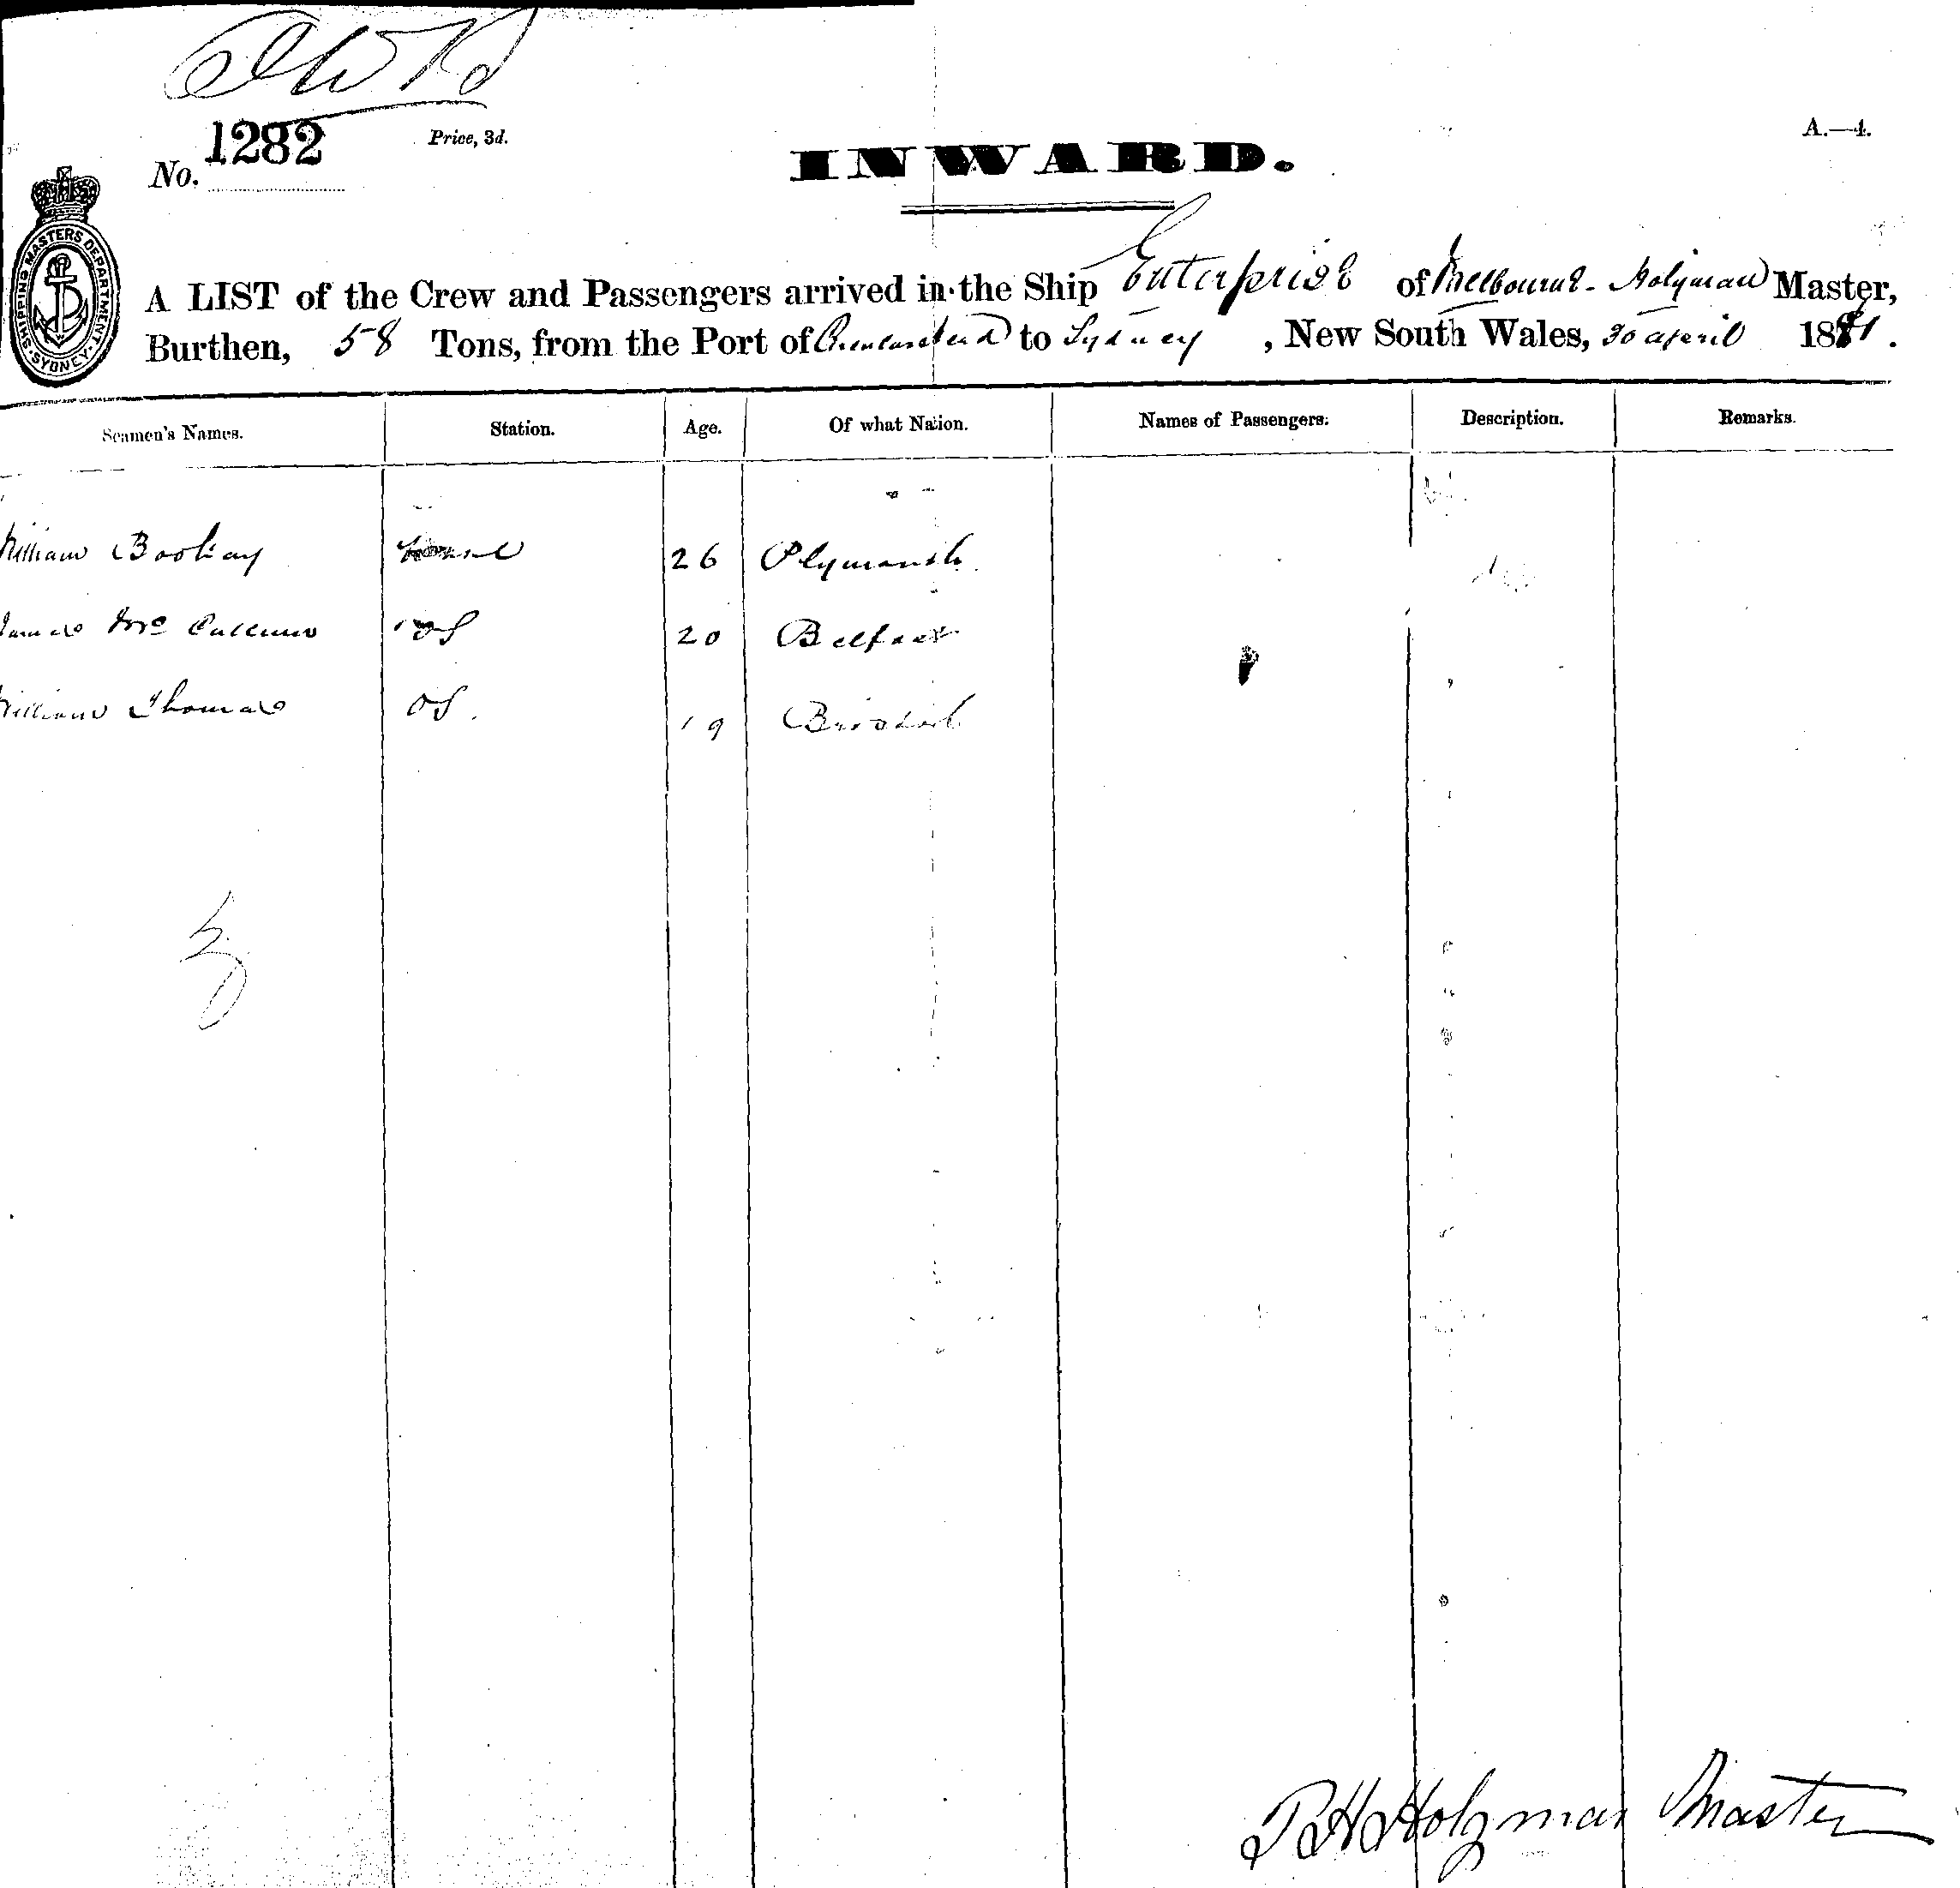 No. 1282 Price, 3d. INWARD. A.—4.
SHIPPING MASTERS DEPARTMENT. SYDNEY.
A LIST of the Crew and Passengers arrived in the Ship Enterprise of Melbourne - Holyman Master,
Burthen, 58 Tons, from the Port of to Sydney, New South Wales, 30 april 1881.
Seamen's Names. Station. Age. Of what Nation. Names of Passengers. Description. Remarks.
William 26 Plymouth
James McCallum OS 20 Belfast
William Thomas OS. 19 Bristol
3
T H Holyman Master